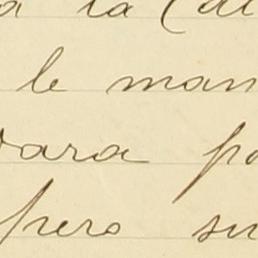 a la (
le man
para p
pero su